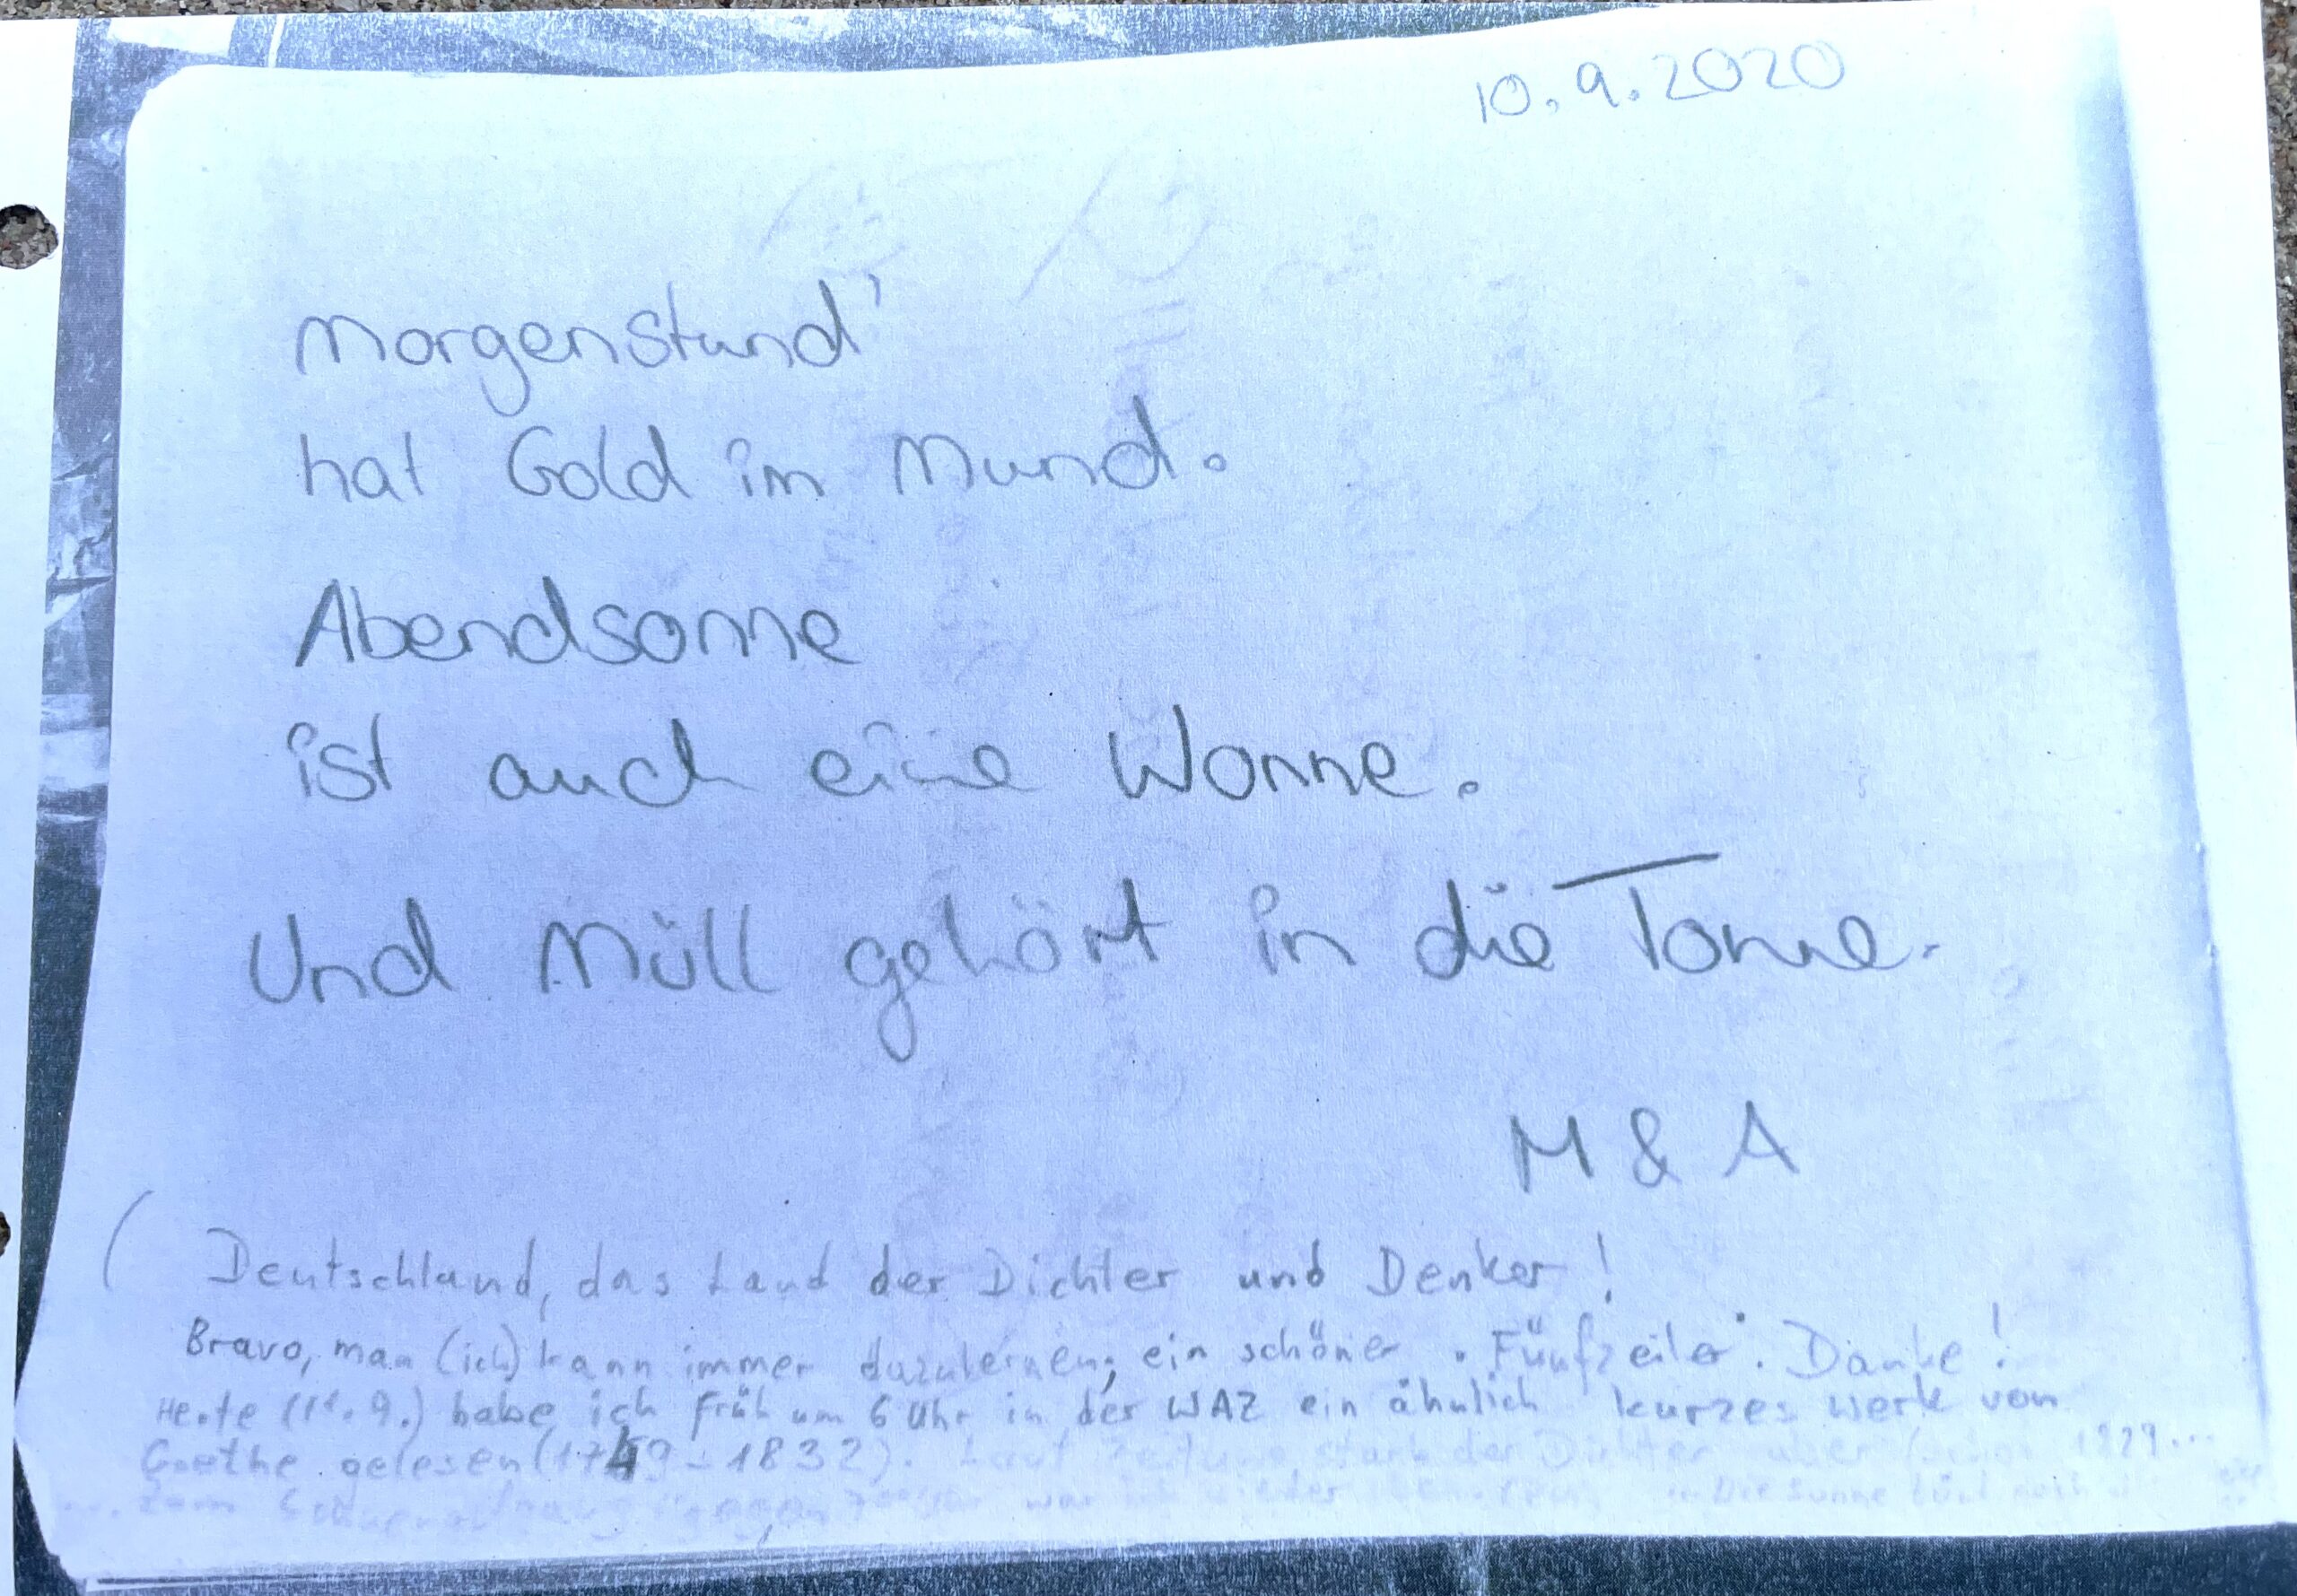 10.9.2020
Morgenstund'
hat Gold im Mund.
Abendsonne
ist auch eine Wonne.
Und Müll gehört in die Tonne.
M & A
( Deutschland, das Land der Dichter und Denker!
Bravo, man (ich) kann immer dazulernen, ein schöner "Fünfzeiler". Danke!
Heute (11.9.) habe ich früh um 6 Uhr in der WAZ ein ähnlich kurzes Werk von
Goethe gelesen (1749-1832). Laut Zeitung starb der Dichter aber schon 1829...
zum gegen war ich wieder Die Sonne